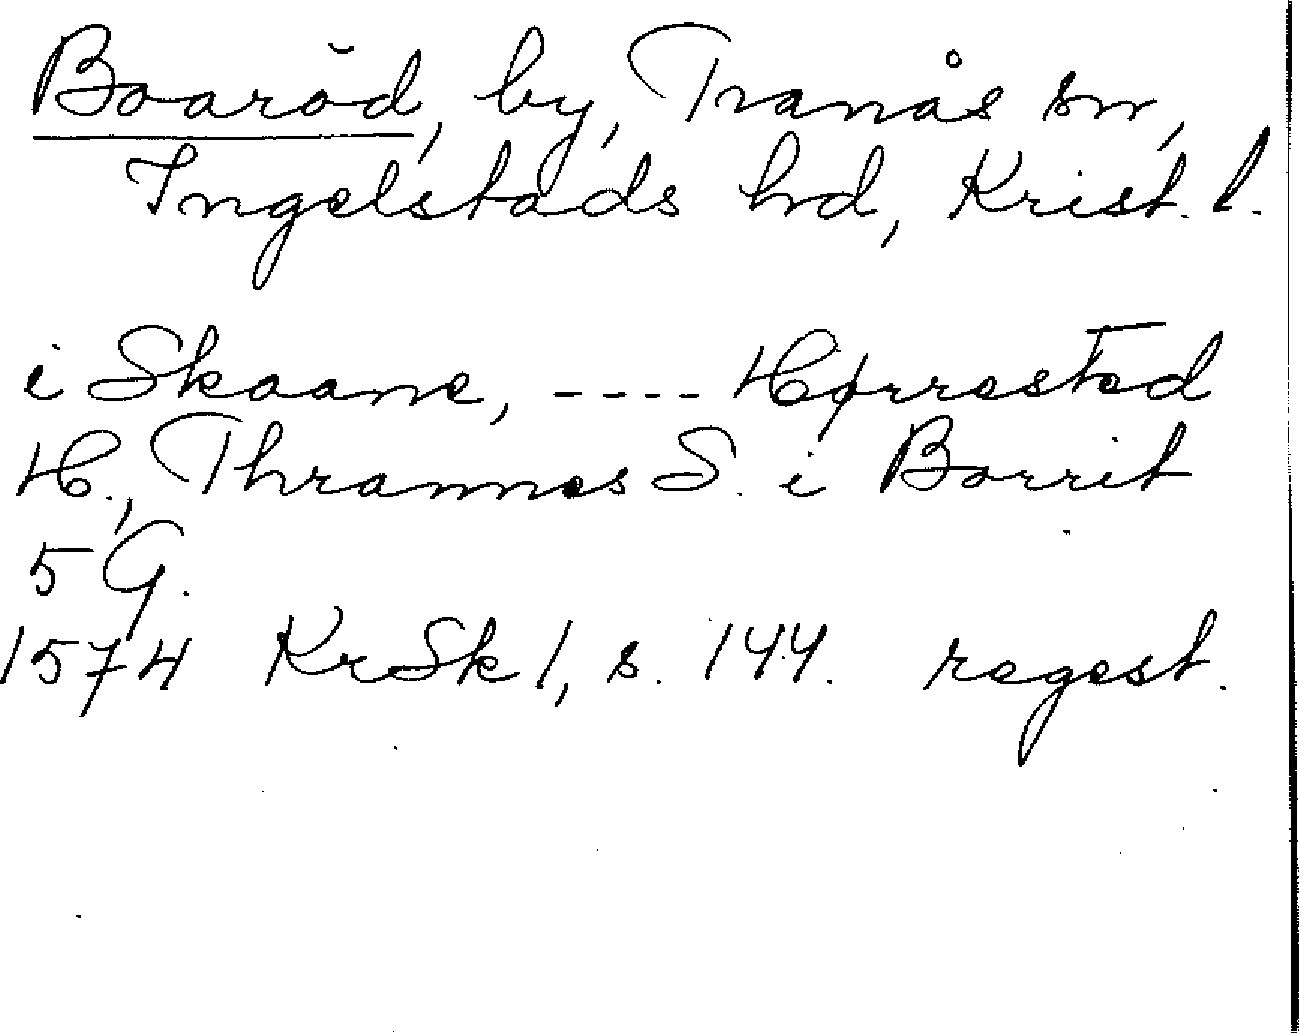 Boaröd, by, Tranås sn,
Ingelstads hd, Krist. l.
i Skaane, ---- Hørrested
H., Thrannes S. i Borrit
5 G.
1574 KrSk 1, s. 144. regest.